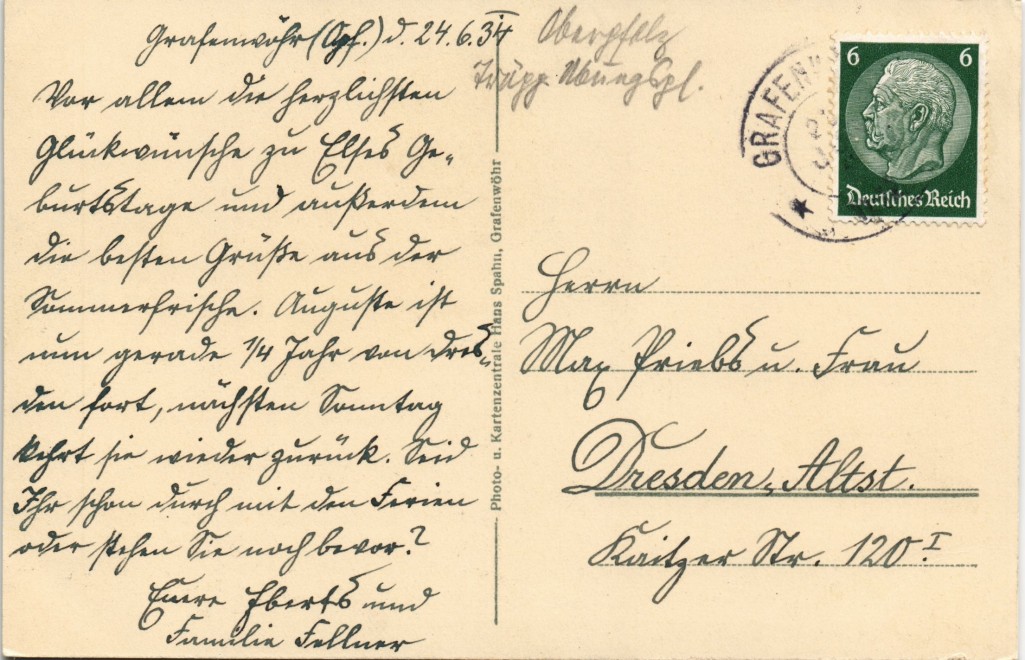 Grafenwöhr (Opf.) d. 24.6.34
Vor allem die herzlichsten
Glückwünsche zu Elses Ge-
burtstage und außerdem
die besten Grüße aus der
Sommerfrische. Auguste ist
nun gerade 1/4 Jahr von Dres-
den fort, nächsten Sonntag
kehrt sie wieder zurück. Seid
Ihr schon durch mit den Ferien
oder stehen Sie noch bevor?
Euere Eberts und
Familie Fellner
Oberpfalz
Trupp. Übungspl.
Photo- u. Kartenzentrale Hans Spahn, Grafenwöhr
GRAFENW
6 6
Deutsches Reich
Herrn
Max Priebs u. Frau
Dresden, Altst.
Kaitzer Str. 120 I